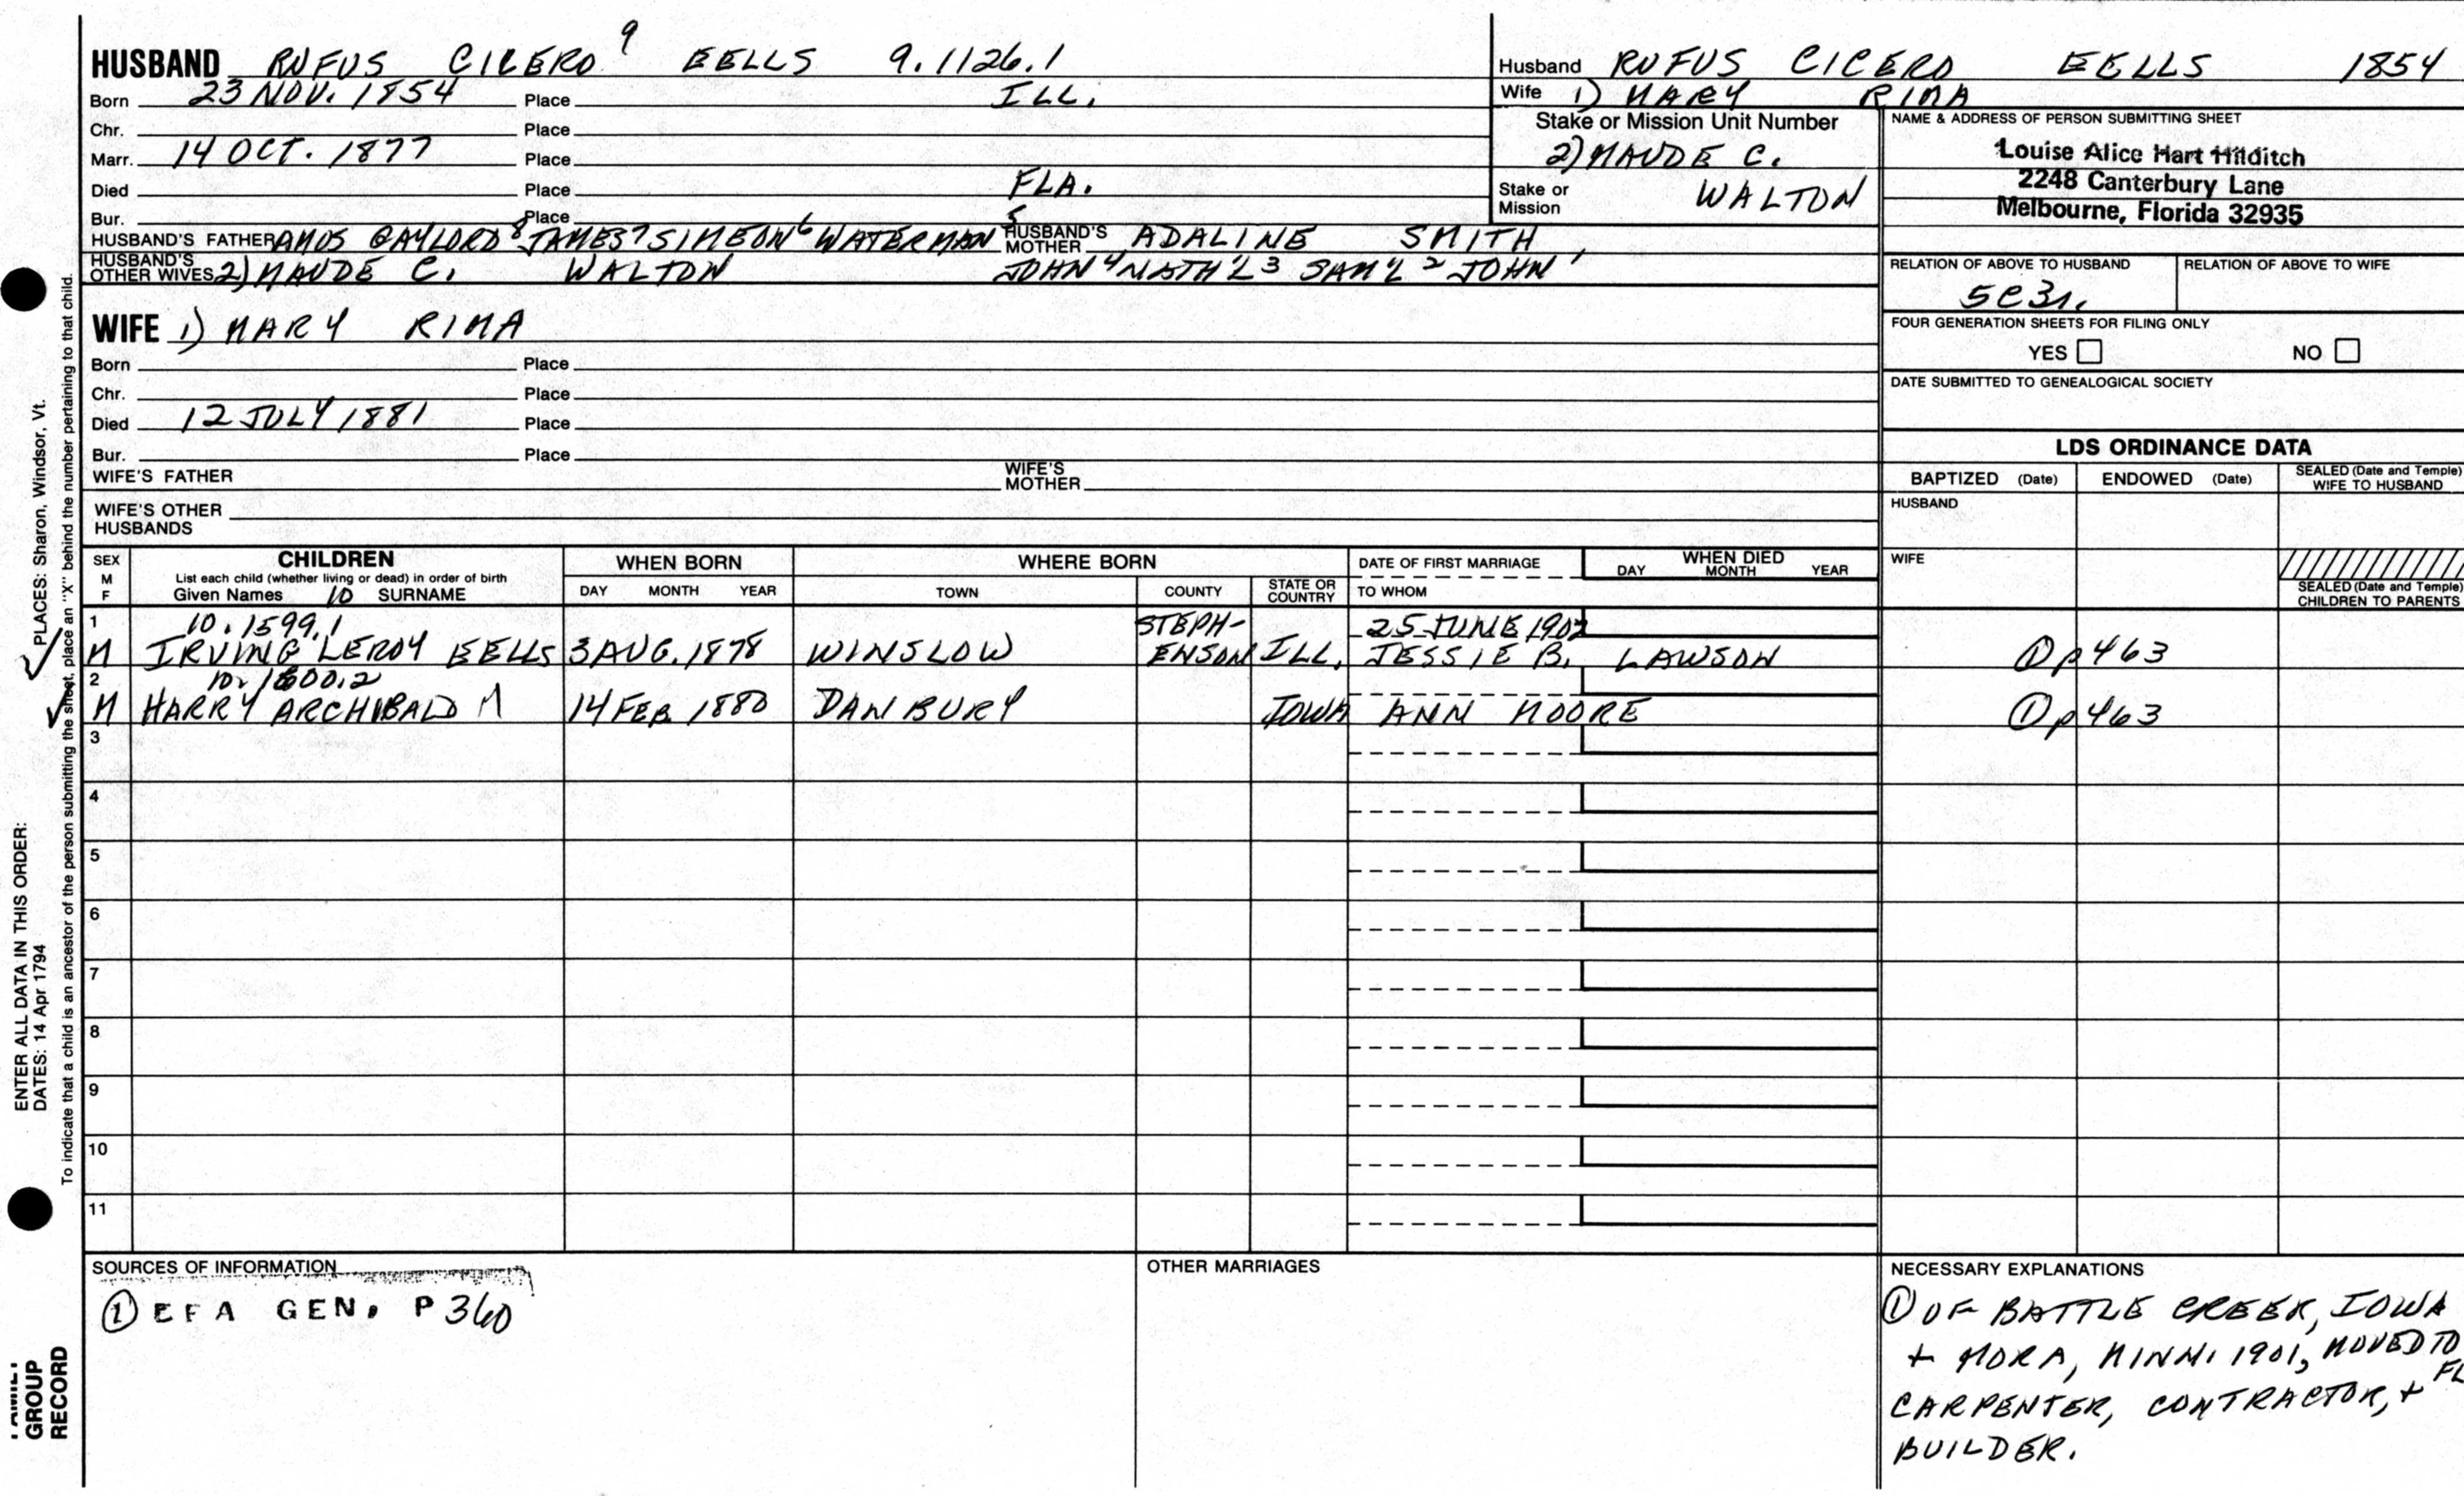 HUSBAND RUFUS CICERO 9 EELLS 9.1126.1
Born 23 NOV. 1854 Place ILL.
Chr. Place
Marr. 14 OCT. 1877 Place
Died Place FLA.
Bur. Place
HUSBAND'S FATHER AMOS GAYLORD 8 JAMES 7 SIMEON 6 WATERMAN 5 HUSBAND'S MOTHER ADALINE SMITH
HUSBAND'S OTHER WIVES 2) MAUDE C. WALTON JOHN 4 NATH'L 3 SAM'L 2 JOHN 1
WIFE 1) MARY RIMA
Born Place
Chr. Place
Died 12 JULY 1881 Place
Bur. Place
WIFE'S FATHER WIFE'S MOTHER
WIFE'S OTHER HUSBANDS
Husband RUFUS CICERO EELLS 1854
Wife 1) MARY RIMA
Stake or Mission Unit Number
2) MAUDE C.
Stake or Mission WALTON
NAME & ADDRESS OF PERSON SUBMITTING SHEET
Louise Alice Hart Hilditch
2248 Canterbury Lane
Melbourne, Florida 32935
RELATION OF ABOVE TO HUSBAND RELATION OF ABOVE TO WIFE
5C3r.
FOUR GENERATION SHEETS FOR FILING ONLY
YES NO
DATE SUBMITTED TO GENEALOGICAL SOCIETY
LDS ORDINANCE DATA
BAPTIZED (Date) ENDOWED (Date) SEALED (Date and Temple) WIFE TO HUSBAND
HUSBAND
WIFE
SEALED (Date and Temple) CHILDREN TO PARENTS
SEX M F
CHILDREN
List each child (whether living or dead) in order of birth
Given Names 10 SURNAME
WHEN BORN
DAY MONTH YEAR
WHERE BORN
TOWN COUNTY STATE OR COUNTRY
DATE OF FIRST MARRIAGE
TO WHOM
WHEN DIED
DAY MONTH YEAR
1 10.1599.1 STEPH- 25 JUNE 1902
M IRVING LEROY EELLS 3 AUG. 1878 WINSLOW ENSON ILL. JESSIE B. LAWSON ① p463
2 10.1600.2
M HARRY ARCHIBALD M 14 FEB 1880 DANBURY IOWA ANN MOORE ① p463
3
4
5
6
7
8
9
10
11
SOURCES OF INFORMATION
① EFA GEN. P 360
OTHER MARRIAGES
NECESSARY EXPLANATIONS
① OF BATTLE CREEK, IOWA
+ MORA, MINN. 1901, MOVED TO
FL
CARPENTER, CONTRACTOR, +
BUILDER.
ENTER ALL DATA IN THIS ORDER:
DATES: 14 Apr 1794 PLACES: Sharon, Windsor, Vt.
To indicate that a child is an ancestor of the person submitting the sheet, place an "X" behind the number pertaining to that child.
FAMILY
GROUP
RECORD